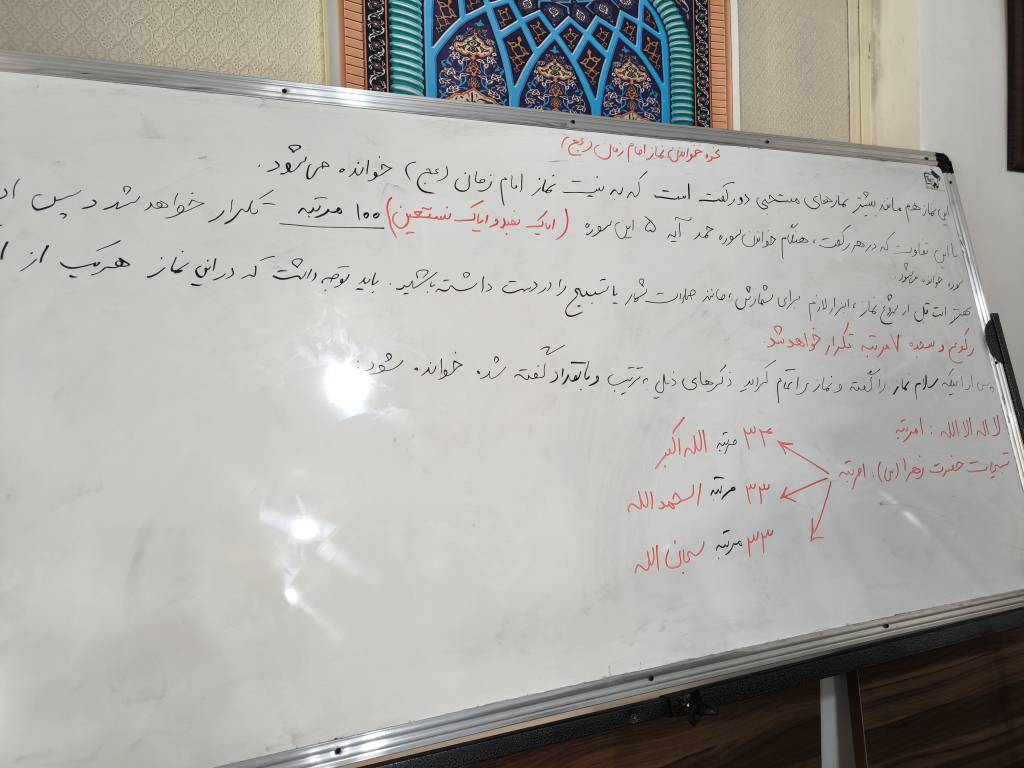 نحوه خواندن نماز امام زمان (عج)
این نماز هم مانند بیشتر نمازهای مستحبی دو رکعت است که به نیت نماز امام زمان (عج) خوانده می‌شود.
با این تفاوت که در هر رکعت، هنگام خواندن سوره حمد آیه ۵ این سوره (ایاک نعبد و ایاک نستعین) ۱۰۰ مرتبه تکرار خواهد شد و پس از
سوره خوانده می‌شود.
بهتر است قبل از شروع نماز، ابزار لازم برای شمارش، مانند صلوات شمار یا تسبیح را در دست داشته باشید. باید توجه داشت که در این نماز هر یک از
رکوع و سجده ۷ مرتبه تکرار خواهد شد.
پس از اینکه سلام نماز را گفته و نماز را تمام کردید ذکرهای ذیل به ترتیب و با تعداد گفته شده خوانده شود:
لا اله الا الله : ۱ مرتبه
تسبیحات حضرت زهرا (س): ۱ مرتبه
۳۴ مرتبه الله اکبر
۳۳ مرتبه الحمد الله
۳۳ مرتبه سبحان الله